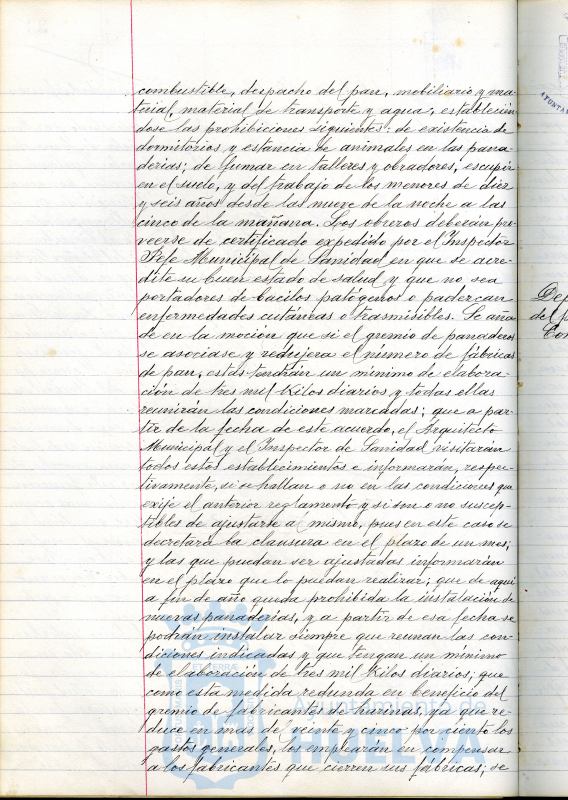 combustible, despacho del pan, mobiliario y ma-
terial, material de transporte y agua, establecien
dose las prohibiciones siguientes: de existencia de
dormitorios y estancia de animales en las pana-
derias; de fumar en talleres y obradores, escupir
en el suelo, y del trabajo de los menores de diez
y seis años desde las nueve de la noche a las
cinco de la mañana. Los obreros deberán pro-
veerse de certificado expedido por el Inspector
Jefe Municipal de Sanidad en que se acre-
dite su buen estado de salud y que no sea
portadores de bacilos patógenos o padezcan
enfermedades cutáneas o trasmisibles. Se aña
de en la moción que si el gremio de panaderos
se asociase y redujera el número de fábricas
de pan, estas tendrán un mínimo de elabora-
ción de tres mil Kilos diarios y todas ellas
reunirán las condiciones marcadas; que a par-
tir de la fecha de este acuerdo, el Arquitecto
Municipal y el Inspector de Sanidad visitarán
todos estos establecimientos e informarán, respec-
tivamente, si se hallan o no en las condiciones que
exije el anterior reglamento y si son o no suscep-
tibles de ajustarse al mismo, pues en este caso se
decretará la clausura en el plazo de un mes;
y las que puedan ser ajustadas informarán
en el plazo que lo puedan realizar; que de aqui
a fin de año queda prohibida la instalación de
nuevas panaderías, y a partir de esa fecha se
podrán instalar siempre que reunan las con-
diciones indicadas y que tengan un mínimo
de elaboración de tres mil Kilos diarios; que
como esta medida redunda en beneficio del
gremio de fabricantes de harinas, ya que re-
duce en mas de veinte y cinco por ciento los
gastos generales, los emplearán en compensar
a los fabricantes que cierren sus fábricas; se
Ayuntamiento de
HUELVA
Dep
del p
Con
AYUNTA